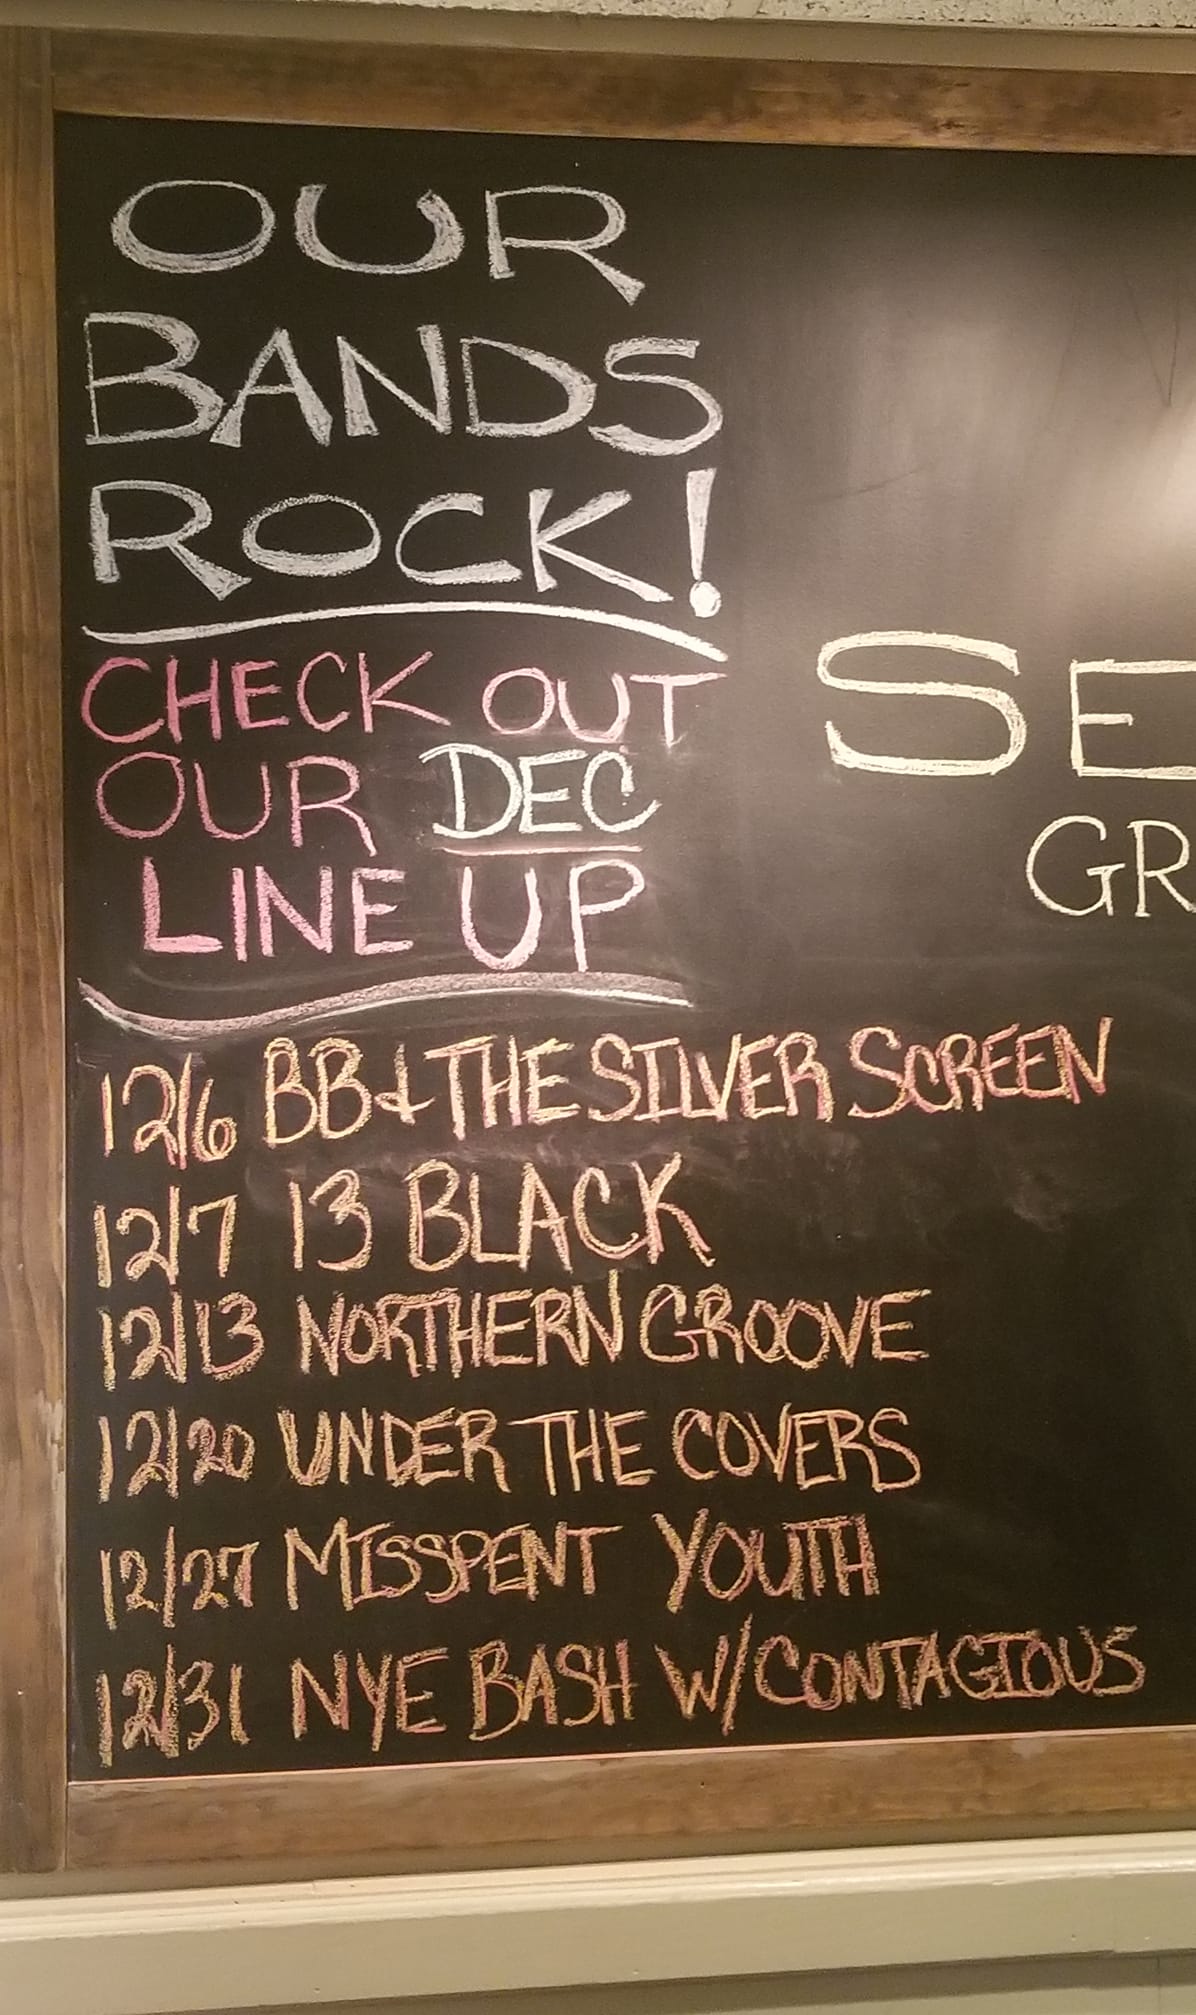 OUR
BANDS
ROCK!
CHECK OUT
OUR DEC
LINE UP
12/6 BB & THE SILVER SCREEN
12/7 13 BLACK
12/13 NORTHERN GROOVE
12/20 UNDER THE COVERS
12/27 MISSPENT YOUTH
12/31 NYE BASH W/CONTAGIOUS
SE
GR